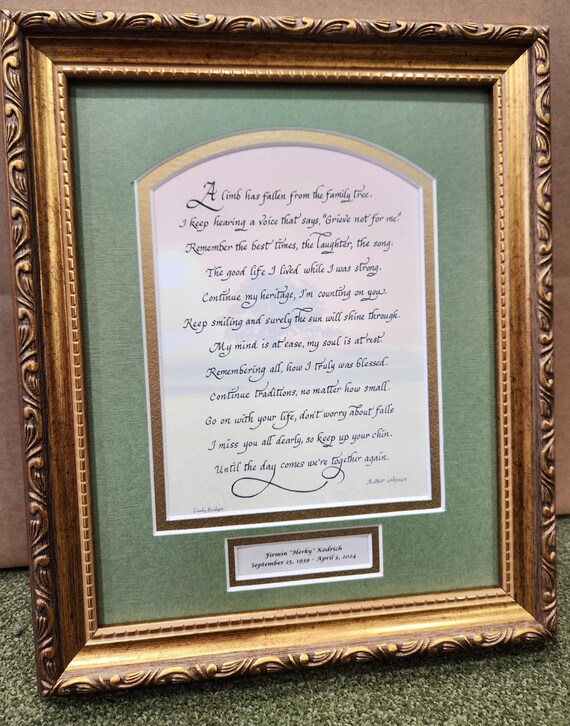 A limb has fallen from the family tree.
I keep hearing a voice that says, "Grieve not for me."
Remember the best times, the laughter, the song.
The good life I lived while I was strong.
Continue my heritage, I'm counting on you.
Keep smiling and surely the sun will shine through.
My mind is at ease, my soul is at rest.
Remembering all, how I truly was blessed.
Continue traditions, no matter how small.
Go on with your life, don't worry about falls
I miss you all dearly, so keep up your chin.
Until the day comes we're together again.
Author unknown
Firmin "Herky" Kodrich
September 25, 1939 - April 5, 2024